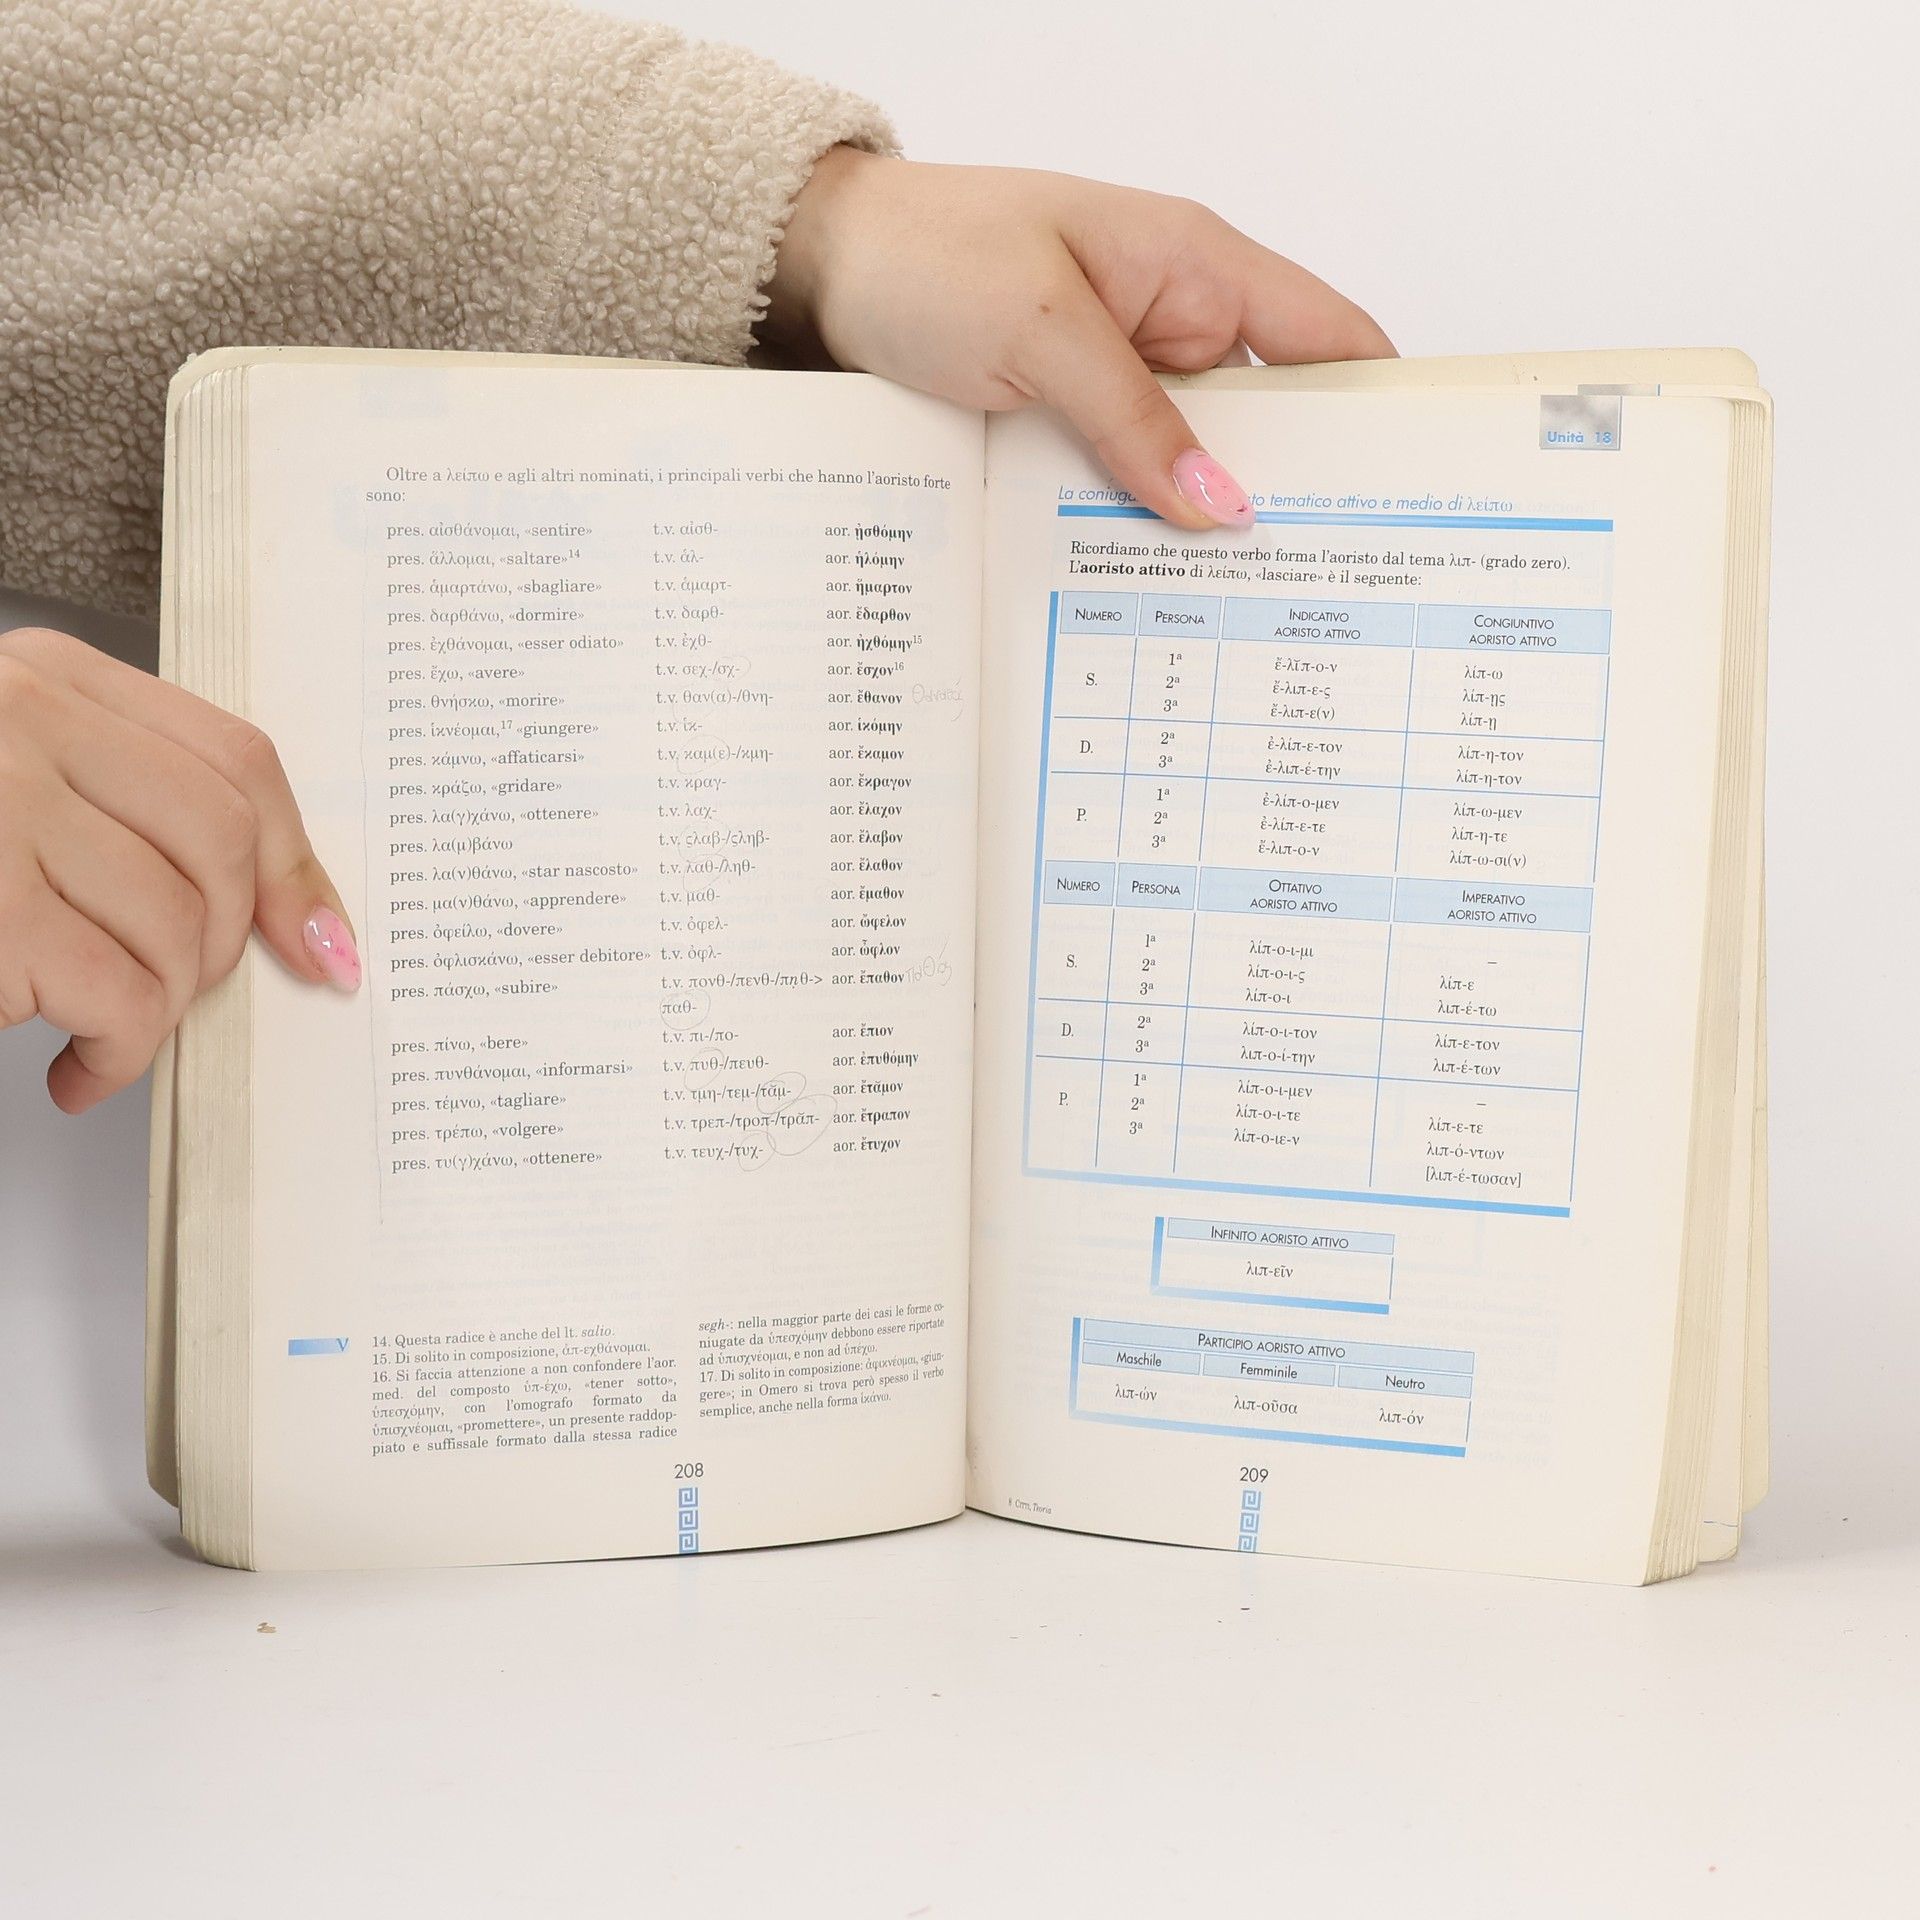 Oltre a λείπω e agli altri nominati, i principali verbi che hanno l'aoristo forte
sono:
pres. αἰσθάνομαι, «sentire» t.v. αἰσθ- aor. ᾐσθόμην
pres. ἅλλομαι, «saltare»14 t.v. ἁλ- aor. ἡλόμην
pres. ἁμαρτάνω, «sbagliare» t.v. ἁμαρτ- aor. ἥμαρτον
pres. δαρθάνω, «dormire» t.v. δαρθ- aor. ἔδαρθον
pres. ἐχθάνομαι, «esser odiato» t.v. ἐχθ- aor. ἠχθόμην15
pres. ἔχω, «avere» t.v. σεχ-/σχ- aor. ἔσχον16
pres. θνήσκω, «morire» t.v. θαν(α)-/θνη- aor. ἔθανον
pres. ἱκνέομαι,17 «giungere» t.v. ἱκ- aor. ἱκόμην
pres. κάμνω, «affaticarsi» t.v. καμ(ε)-/κμη- aor. ἔκαμον
pres. κράζω, «gridare» t.v. κραγ- aor. ἔκραγον
pres. λα(γ)χάνω, «ottenere» t.v. λαχ- aor. ἔλαχον
pres. λα(μ)βάνω t.v. ςλαβ-/ςληβ- aor. ἔλαβον
pres. λα(ν)θάνω, «star nascosto» t.v. λαθ-/ληθ- aor. ἔλαθον
pres. μα(ν)θάνω, «apprendere» t.v. μαθ- aor. ἔμαθον
pres. ὀφείλω, «dovere» t.v. ὀφελ- aor. ὤφελον
pres. ὀφλισκάνω, «esser debitore» t.v. ὀφλ- aor. ὦφλον
pres. πάσχω, «subire» t.v. πονθ-/πενθ-/πῃθ-> aor. ἔπαθον
παθ-
pres. πίνω, «bere» t.v. πι-/πο- aor. ἔπιον
pres. πυνθάνομαι, «informarsi» t.v. πυθ-/πευθ- aor. ἐπυθόμην
pres. τέμνω, «tagliare» t.v. τμη-/τεμ-/τᾰμ- aor. ἔτᾰμον
pres. τρέπω, «volgere» t.v. τρεπ-/τροπ-/τρᾰπ- aor. ἔτραπον
pres. τυ(γ)χάνω, «ottenere» t.v. τευχ-/τυχ- aor. ἔτυχον
V
14. Questa radice è anche del lt. salio.
15. Di solito in composizione, ἀπ-εχθάνομαι.
16. Si faccia attenzione a non confondere l'aor.
med. del composto ὑπ-έχω, «tener sotto»,
ὑπεσχόμην, con l'omografo formato da
ὑπισχνέομαι, «promettere», un presente raddop-
piato e suffissale formato dalla stessa radice
segh-: nella maggior parte dei casi le forme co-
niugate da ὑπεσχόμην debbono essere riportate
ad ὑπισχνέομαι, e non ad ὑπέχω.
17. Di solito in composizione: ἀφικνέομαι, «giun-
gere»; in Omero si trova però spesso il verbo
semplice, anche nella forma ἱκάνω.
208
Unità 18
La coniuga to tematico attivo e medio di λείπω
Ricordiamo che questo verbo forma l'aoristo dal tema λιπ- (grado zero).
L'aoristo attivo di λείπω, «lasciare» è il seguente:
NUMERO PERSONA INDICATIVO AORISTO ATTIVO CONGIUNTIVO AORISTO ATTIVO
S. 1ª ἔ-λῐπ-ο-ν λίπ-ω
2ª ἔ-λιπ-ε-ς λίπ-ῃς
3ª ἔ-λιπ-ε(ν) λίπ-ῃ
D. 2ª ἐ-λίπ-ε-τον λίπ-η-τον
3ª ἐ-λιπ-έ-την λίπ-η-τον
P. 1ª ἐ-λίπ-ο-μεν λίπ-ω-μεν
2ª ἐ-λίπ-ε-τε λίπ-η-τε
3ª ἔ-λιπ-ο-ν λίπ-ω-σι(ν)
NUMERO PERSONA OTTATIVO AORISTO ATTIVO IMPERATIVO AORISTO ATTIVO
S. 1ª λίπ-ο-ι-μι –
2ª λίπ-ο-ι-ς λίπ-ε
3ª λίπ-ο-ι λιπ-έ-τω
D. 2ª λίπ-ο-ι-τον λίπ-ε-τον
3ª λιπ-ο-ί-την λιπ-έ-των
P. 1ª λίπ-ο-ι-μεν –
2ª λίπ-ο-ι-τε λίπ-ε-τε
3ª λίπ-ο-ιε-ν λιπ-ό-ντων
[λιπ-έ-τωσαν]
INFINITO AORISTO ATTIVO
λιπ-εῖν
PARTICIPIO AORISTO ATTIVO
Maschile Femminile Neutro
λιπ-ών λιπ-οῦσα λιπ-όν
209
8 CITTI, Teoria